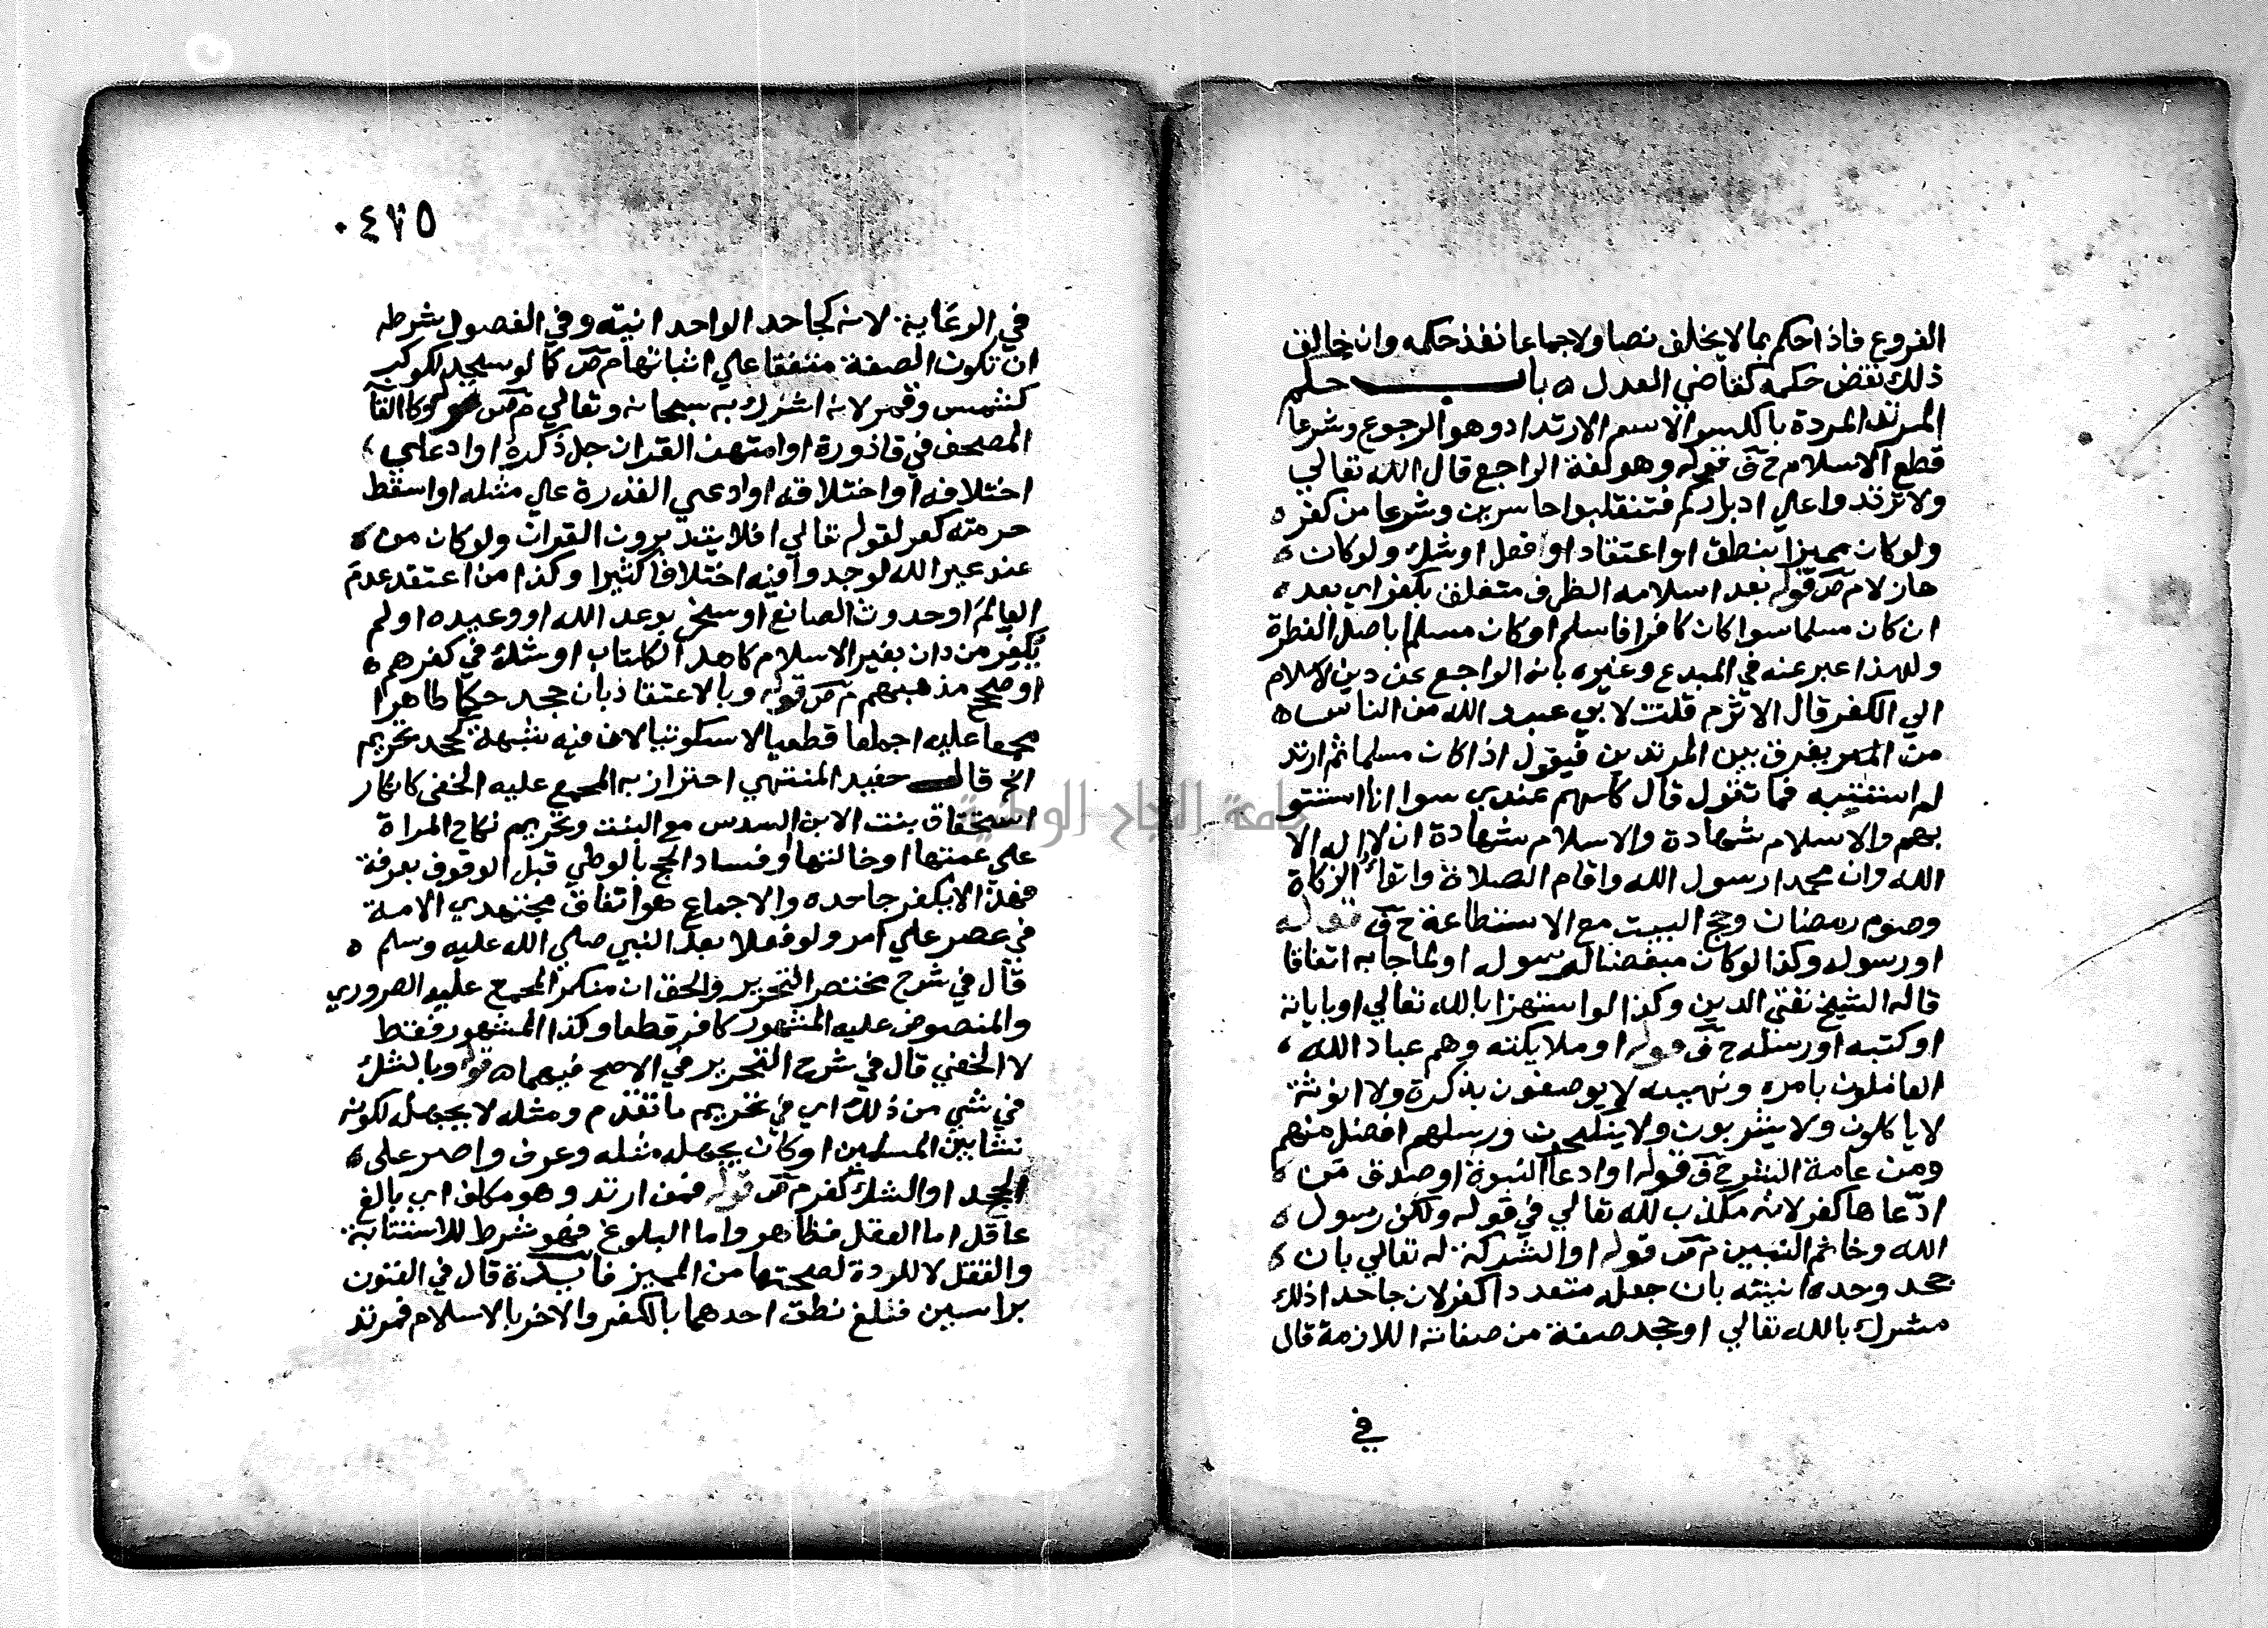 الفروع فاذا حكم بما لا يخلف نصا ولا جماعا نفذ حكمه وان خالف
ذلك نقض حكمه كقاضي العدل ه باب حكم
المرتد المردة بالكسر الاسم الارتداد وهو الرجوع وشرعا
قطع الاسلام ح ف قوله وهو لغة الراجع قال الله تعالي
ولا ترتدوا علي ادباركم فتنقلبوا خاسرين وشرعا من كفر ه
ولو كان مميزا بنطق او اعتقاد او فعل او شك ولو كان ه
هازلا م ص قوله بعد اسلامه الظرف متعلق بكفر اي بعد ه
ان كان مسلما سوا كان كافرا فاسلم او كان مسلما باصل الفطرة
ولهذا عبر عنه في المبدع وغيره بانه الراجع عن دين الاسلام
الي الكفر قال الاثرم قلت لابي عبد الله من الناس ه
من يفرق بين المرتدين فيقول اذا كان مسلما ثم ارتد
لم استتبه فما تقول قال كلهم عندي سوا انا استتو
بهم والاسلام شهادة والاسلام شهادة ان لا اله الا
الله وان محمدا رسول الله واقام الصلاة وايتاء الزكاة
وصوم رمضان وحج البيت مع الاستطاعة ح ف قوله
او رسوله وكذا لو كان مبغضا لرسوله او لما جا به اتفاقا
قاله الشيخ تقي الدين وكذا لو استهزا بالله تعالي او باياته
او كتبه او رسله ح ف قوله او ملايكته وهم عباد الله ه
العاملون بامره ونهيه لا يوصفون بذكرة ولا انوثة
لا ياكلون ولا يشربون ولا ينكحون ورسلهم افضل منهم
ومن عامة البشر ح ف قوله او ادعا النبوة او صدق من ه
ادعاها كفر لانه مكذب لله تعالي في قوله ولكن رسول ه
الله وخاتم النبيين م ص قوله او الشركة له تعالي بان ه
جحد وحدانيته بان جعله متعددا كفر لان جاحد ذلك
مشرك بالله تعالي او جحد صفة من صفاته اللازمة قال
في
٠٤٧٥
في الرعاية لانه كجاحد الواحدانيته وفي الفصول شرطه
ان تكون الصفة متفقا علي اثباتها م ص كما لو سجد لكوكب
كشمس وقمر لانه اشرك به سبحانه وتعالي م ص وكالقا
المصحف في قاذورة او امتهن القران جل ذكره او ادعلي
اختلافه او اختلاقه او ادعي القدرة علي مثله او اسقط
حرمته كفر لقوله تعالي افلا يتدبرون القران ولو كان من ه
عند غير الله لوجدوا فيه اختلافا كثيرا وكذا من اعتقد عدم
العالم او حدوث الصانع او سخر بوعد الله او وعيده او لم
يكفر من دان بغير الاسلام كاهل الكتاب او شك في كفرهم ه
او صحح مذهبهم م ص قوله وبالاعتقاد بان جحد حكما ظاهرا
مجمعا عليه اجماعا قطعيا لا سكوتيا لان فيه شبهة كجحد تحريم
الخ قال حفيد المنتهي احترازا به المجمع عليه الخفي كانكار
استحقاق بنت الابن السدس مع البنت وتحريم نكاح المراة
علي عمتها او خالتها وفساد الحج بالوطي قبل الوقوف بعرفة
فهذا لا يكفر جاحده والاجماع هو اتفاق مجتهدي الامة
في عصر علي امر ولو فعلا بعد النبي صلي الله عليه وسلم ه
قال في شرح مختصر التحرير والحق ان منكر المجمع عليه الضروري
والمنصوص عليه المشهور كافر قطعا وكذا المشهور فقط
لا الخفي قال في شرح التحرير في الاصح فيهما ه قوله وبالشك
في شي من ذلك اي في تحريم ما تقدم ومثله لا يجهله لكونه
نشا بين المسلمين او كان يجهله مثله وعرف واصر علي ه
الجحد او الشك كفر م ص قوله فمن ارتد وهو مكلف اي بالغ
عاقل اما العقل فظاهر واما البلوغ فهو شرط للاستتابة
والقتل لا للردة لصحتها من المميز فايدة قال في الفنون
براسين فبلغ نطق احدهما بالكفر والاخر بالاسلام فمرتد
جامعة النجاح الوطنية